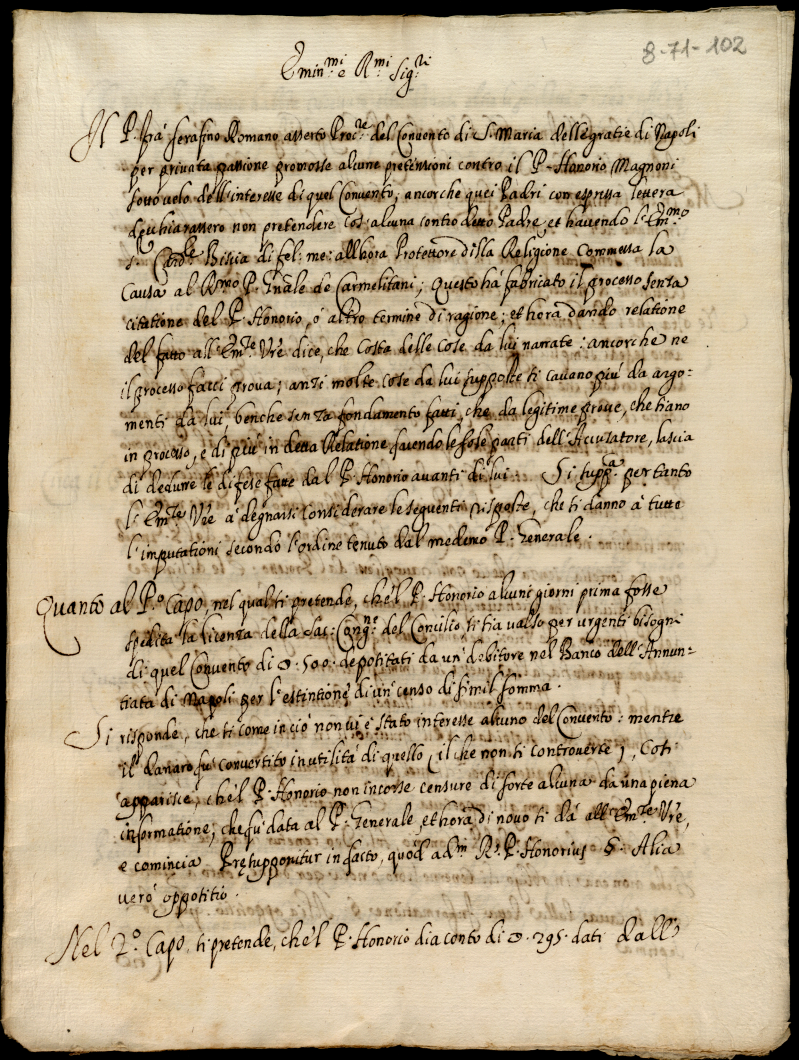 8-71-102
Emin:mi e R:mi Sig:ri
Il P. frà Serafino Romano asserto Proc:re del Convento di S. Maria delle gratie di Napoli
per privata passione promosse alcune pretensioni contro il P. Honorio Magnoni
sotto velo dell'interesse di quel Convento, ancorche quei Padri con espressa lettera
dechiarassero non pretendere cos'alcuna contro detto Padre, et havendo l'Em:mo
S. Card:le Bissia di fel: me: all'hora Protettore della Religione commessa la
Causa al R:mo P. Gn̄ale de Carmelitani; Questo hà fabricato il processo senza
citatione del P. Honorio, ò altro termine di ragione; et hora dando relatione
del fatto all'Em:ze Vr̄e dice, che costa delle cose da lui narrate: ancorche ne
il processo facci prova; anzi molte cose da lui supposte si cavano più da argo=
menti da lui, benche senza fondamento fatti, che da legitime prove, che siano
in processo, e di più in detta Relatione, facendo le sole parti dell'Accusatore, lascia
di dedurre le difese fatte dal P. Honorio avanti di lui. Si supp:ca pertanto
l'Em:ze Vr̄e à degnarsi considerare le seguenti risposte, che si danno à tutte
l'imputationi secondo l'ordine tenuto dal medemo P. Generale.
Quanto al P:o Capo, nel qual si pretende, che'l P. Honorio alcuni giorni prima fosse
spedita la licenza della Sac: Cong:ne del Concilio, si sia valso per urgenti bisogni
di quel Convento di D. 500. depositati da un debitore nel Banco dell'Annun=
tiata di Napoli per l'estintione di un censo di simil somma.
Si risponde, che si come in ciò non vi è stato interesse alcuno del Convento: mentre
il danaro fu convertito in utilità di quello (il che non si controverte), Così
apparisce, che'l P. Honorio non incorse censure di sorte alcuna da una piena
informatione, che fù data al P. Generale, et hora di novo si dà all'Em:ze Vr̄e,
e comincia Pręsupponitur in facto, quod adm. R. P. Honorius §. Alia
vero oppositio.
Nel 2:o Capo, si pretende, che'l P. Honorio dia conto di D. 295. dati dall'